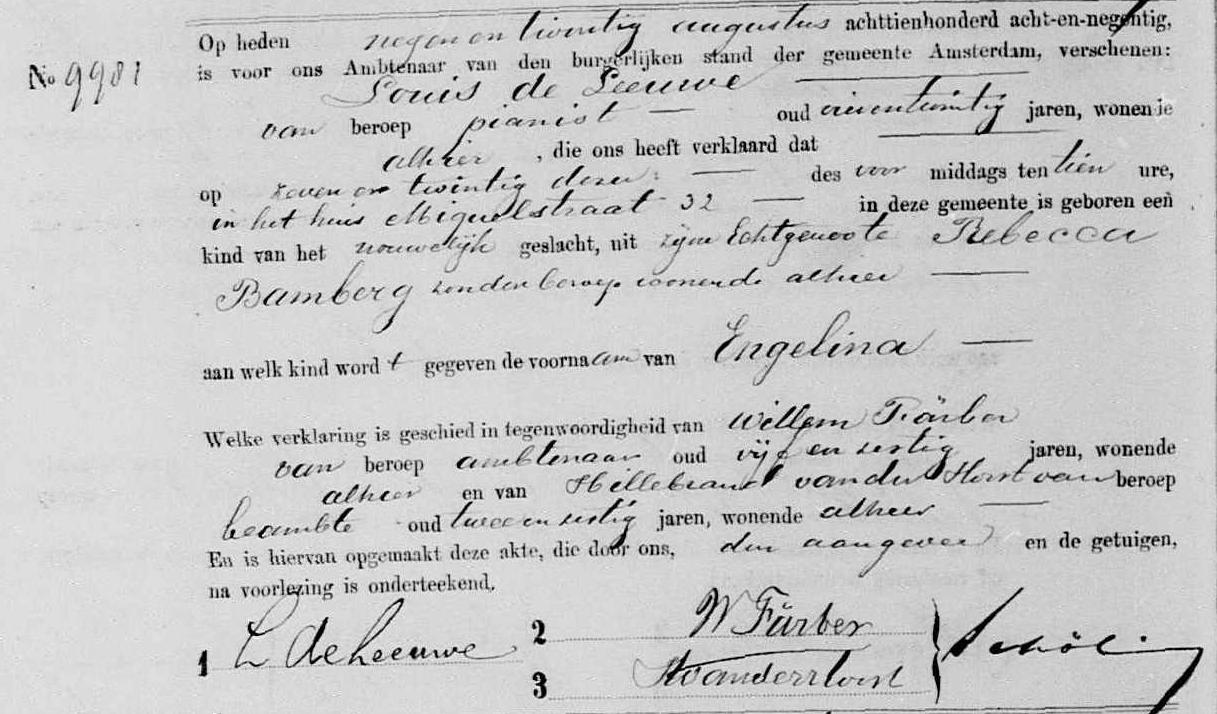 Op heden negen en twintig augustus achttienhonderd acht-en-negentig,
No 9981 is voor ons Ambtenaar van den burgerlijken stand der gemeente Amsterdam, verschenen:
Louis de Leeuwe
van beroep pianist oud jaren, wonende
alhier, die ons heeft verklaard dat
op zeven en twintig dezer des voor middags ten tien ure,
in het huis Miquelstraat 32 in deze gemeente is geboren een
kind van het vrouwelijk geslacht, uit zijne Echtgenoote Rebecca
Bamberg zonder beroep wonende alhier
aan welk kind wordt gegeven de voornaam van Engelina
Welke verklaring is geschied in tegenwoordigheid van Willem Färber
van beroep ambtenaar oud vijf en zestig jaren, wonende
alhier en van Hillebrand van der Horst van beroep
beambte oud twee en zestig jaren, wonende alhier
En is hiervan opgemaakt deze akte, die door ons, den aangever en de getuigen,
na voorlezing is onderteekend.
1 L de Leeuwe
2 W Färber
3 H van der Horst